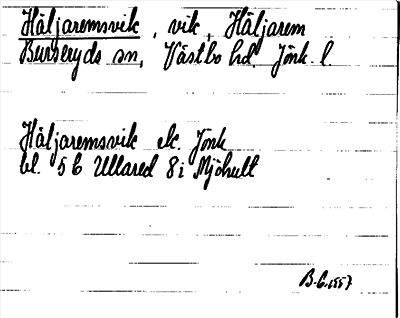 Häljaremsvik, vik, Häljarem
Burseryds sn, Västbo hd. Jönk. l.
Häljaremsvik ek. Jönk
bl. 5C Ullared 8i Mjöhult
B.G. 1557